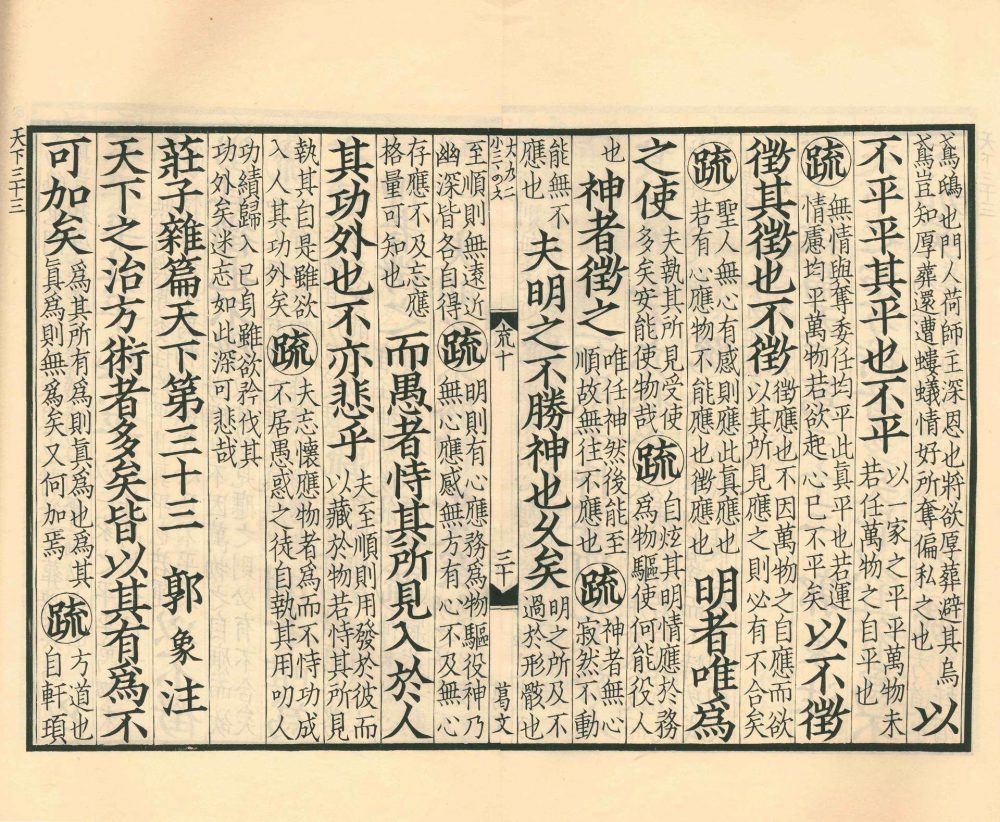 鳶鴟也門人荷師主深恩也將欲厚葬避其烏鳶豈知厚葬還遭螻蟻情好所奪偏私之也以
不平平其平也不平以一家之平平萬物未若任萬物之自平也
疏無情與奪委任均平此真平也若運情慮均平萬物若欲起心已不平矣以不徵
徵其徵也不徵徵應也不因萬物之自應而欲以其所見應之則必有不合矣
疏聖人無心有感則應此真應也若有心應物不能應也徵應也明者唯爲
之使夫執其所見受使多矣安能使物哉疏自炫其明情應於務爲物驅使何能役人
也神者徵之唯任神然後能至順故無往不應也疏神者無心寂然不動
能無不應也夫明之不勝神也久矣明之所及不過於形骸也
大九二
荒十
三十
葛文
至順則無遠近幽深皆各自得疏明則有心應務爲物驅役神乃無心應感無方有心不及無心
存應不及忘應格量可知也而愚者恃其所見入於人
其功外也不亦悲乎夫至順則用發於彼而以藏於物若恃其所見
執其自是雖欲入人其功外矣疏夫忘懷應物者爲而不恃功成不居愚惑之徒自執其用叨人
功績歸入己身雖欲矜伐其功外矣迷忘如此深可悲哉
莊子雜篇天下第三十三 郭象注
天下之治方術者多矣皆以其有爲不
可加矣爲其所有爲則眞爲也爲其眞爲則無爲矣又何加焉疏方道也自軒頊
天下三十三